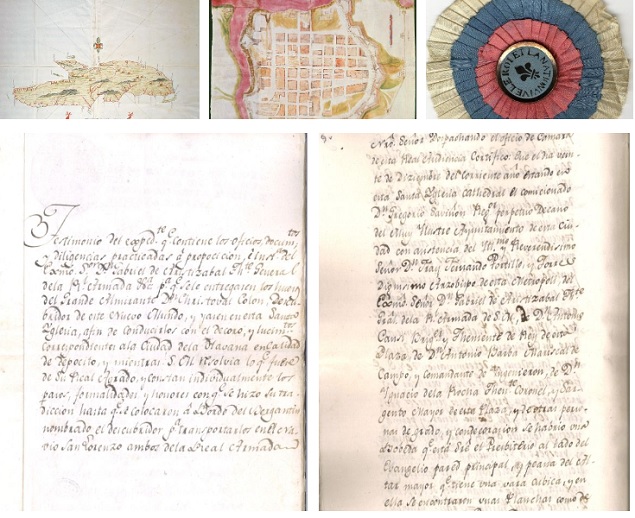 VIVE LE ROI ET LA NATION
Testimonio del exped.te q.e contiene los oficios, docum.tos
y diligencias practicadas a proposicion, è ins.a del
Exômo. S.or D.n Gabriel de Aristizabal Th.e General
de la R.l Armada p.a q.e se le entregaren los huesos
del Grande Almirante D.n Christobal Colon, Descu-
bridor de este Nuevo Mundo, y yacen en esta Santa
Yglesia, a fin de conducirlos con el decoro, y lucim.to
correspondiente a la Ciudad de la Havana en calidad
de deposito, y mientras S. M. resolvia lo q.e fuese
de Su Real agrado, y constan individualmente los
pasos, formalidades y honores con q.e se hizo su tra-
diccion hasta q.e se colocaron a Bordo del Bergantin
nombrado el descubridor p.a transportarlos en el Na-
vio San Lorenzo ambos de la Real Armada
Señor Despachando el oficio de Camara
de esta Real Audiencia Certifico: Que el dia vein-
te de Diziembre del corriente año estando en
esta Santa Yglesia Cathedral el comicionado
D.n Gregorio Saviñon Reg.or perpetuo decano
del Muy Ylustre Ayuntamiento de esta Ciu-
dad con asistencia del Yll.mo y Reverendisimo
Señor D.n Fray Fernando Portillo, y Torres
dignisimo Arzobispo de esta Metropoli del
Exômo Señor D.n Gabriel de Aristizabal Th.e
Gral. de la R.l Armada de S. M., de D.n Antonio
Cansi Brig.r y Theniente de Rey de esta
Plaza, de D.n Antonio Barba Mariscal de
Campo, y Comandante de Yngenieros, de D.n
Ignacio de la Rocha Then.te Coronel, y Sar-
gento Mayor de esta Plaza, y de otras perso-
nas de grado, y condecoracion se habrio una
Bobeda q.e esta sre el Presbiterio al lado del
Evangelio pared principal, y peana del Al-
tar mayor q.e tiene una vara cubica, y en
ella se encontraron unas Planchas como de